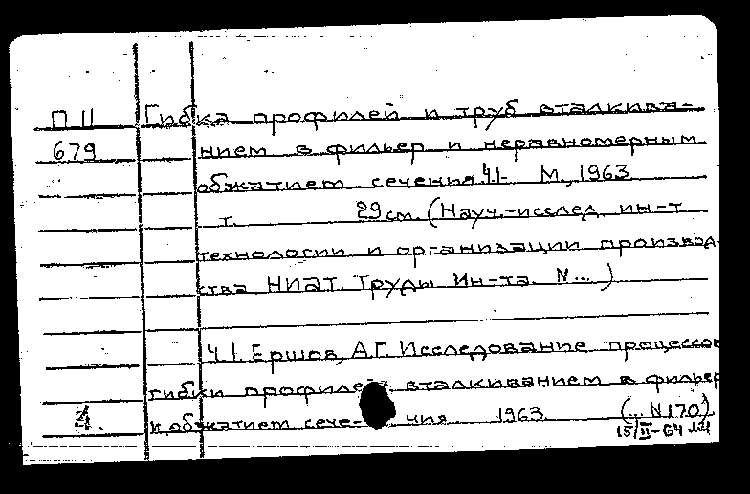 П II Гибка профилей и труб вталкива-
679 нием в фильер и неравномерным
обжатием сечения. Ч.1- М., 1963
т. 29 см. (Науч.-исслед. ин-т
технологии и организации производ-
ства НИАТ. Труды Ин-та. N... )
Ч.1. Ершов, А.Г. Исследование процессов
гибки профилей вталкиванием в фильер
4. и обжатием сече- ния. 1963. (.. N170).
15/II-64